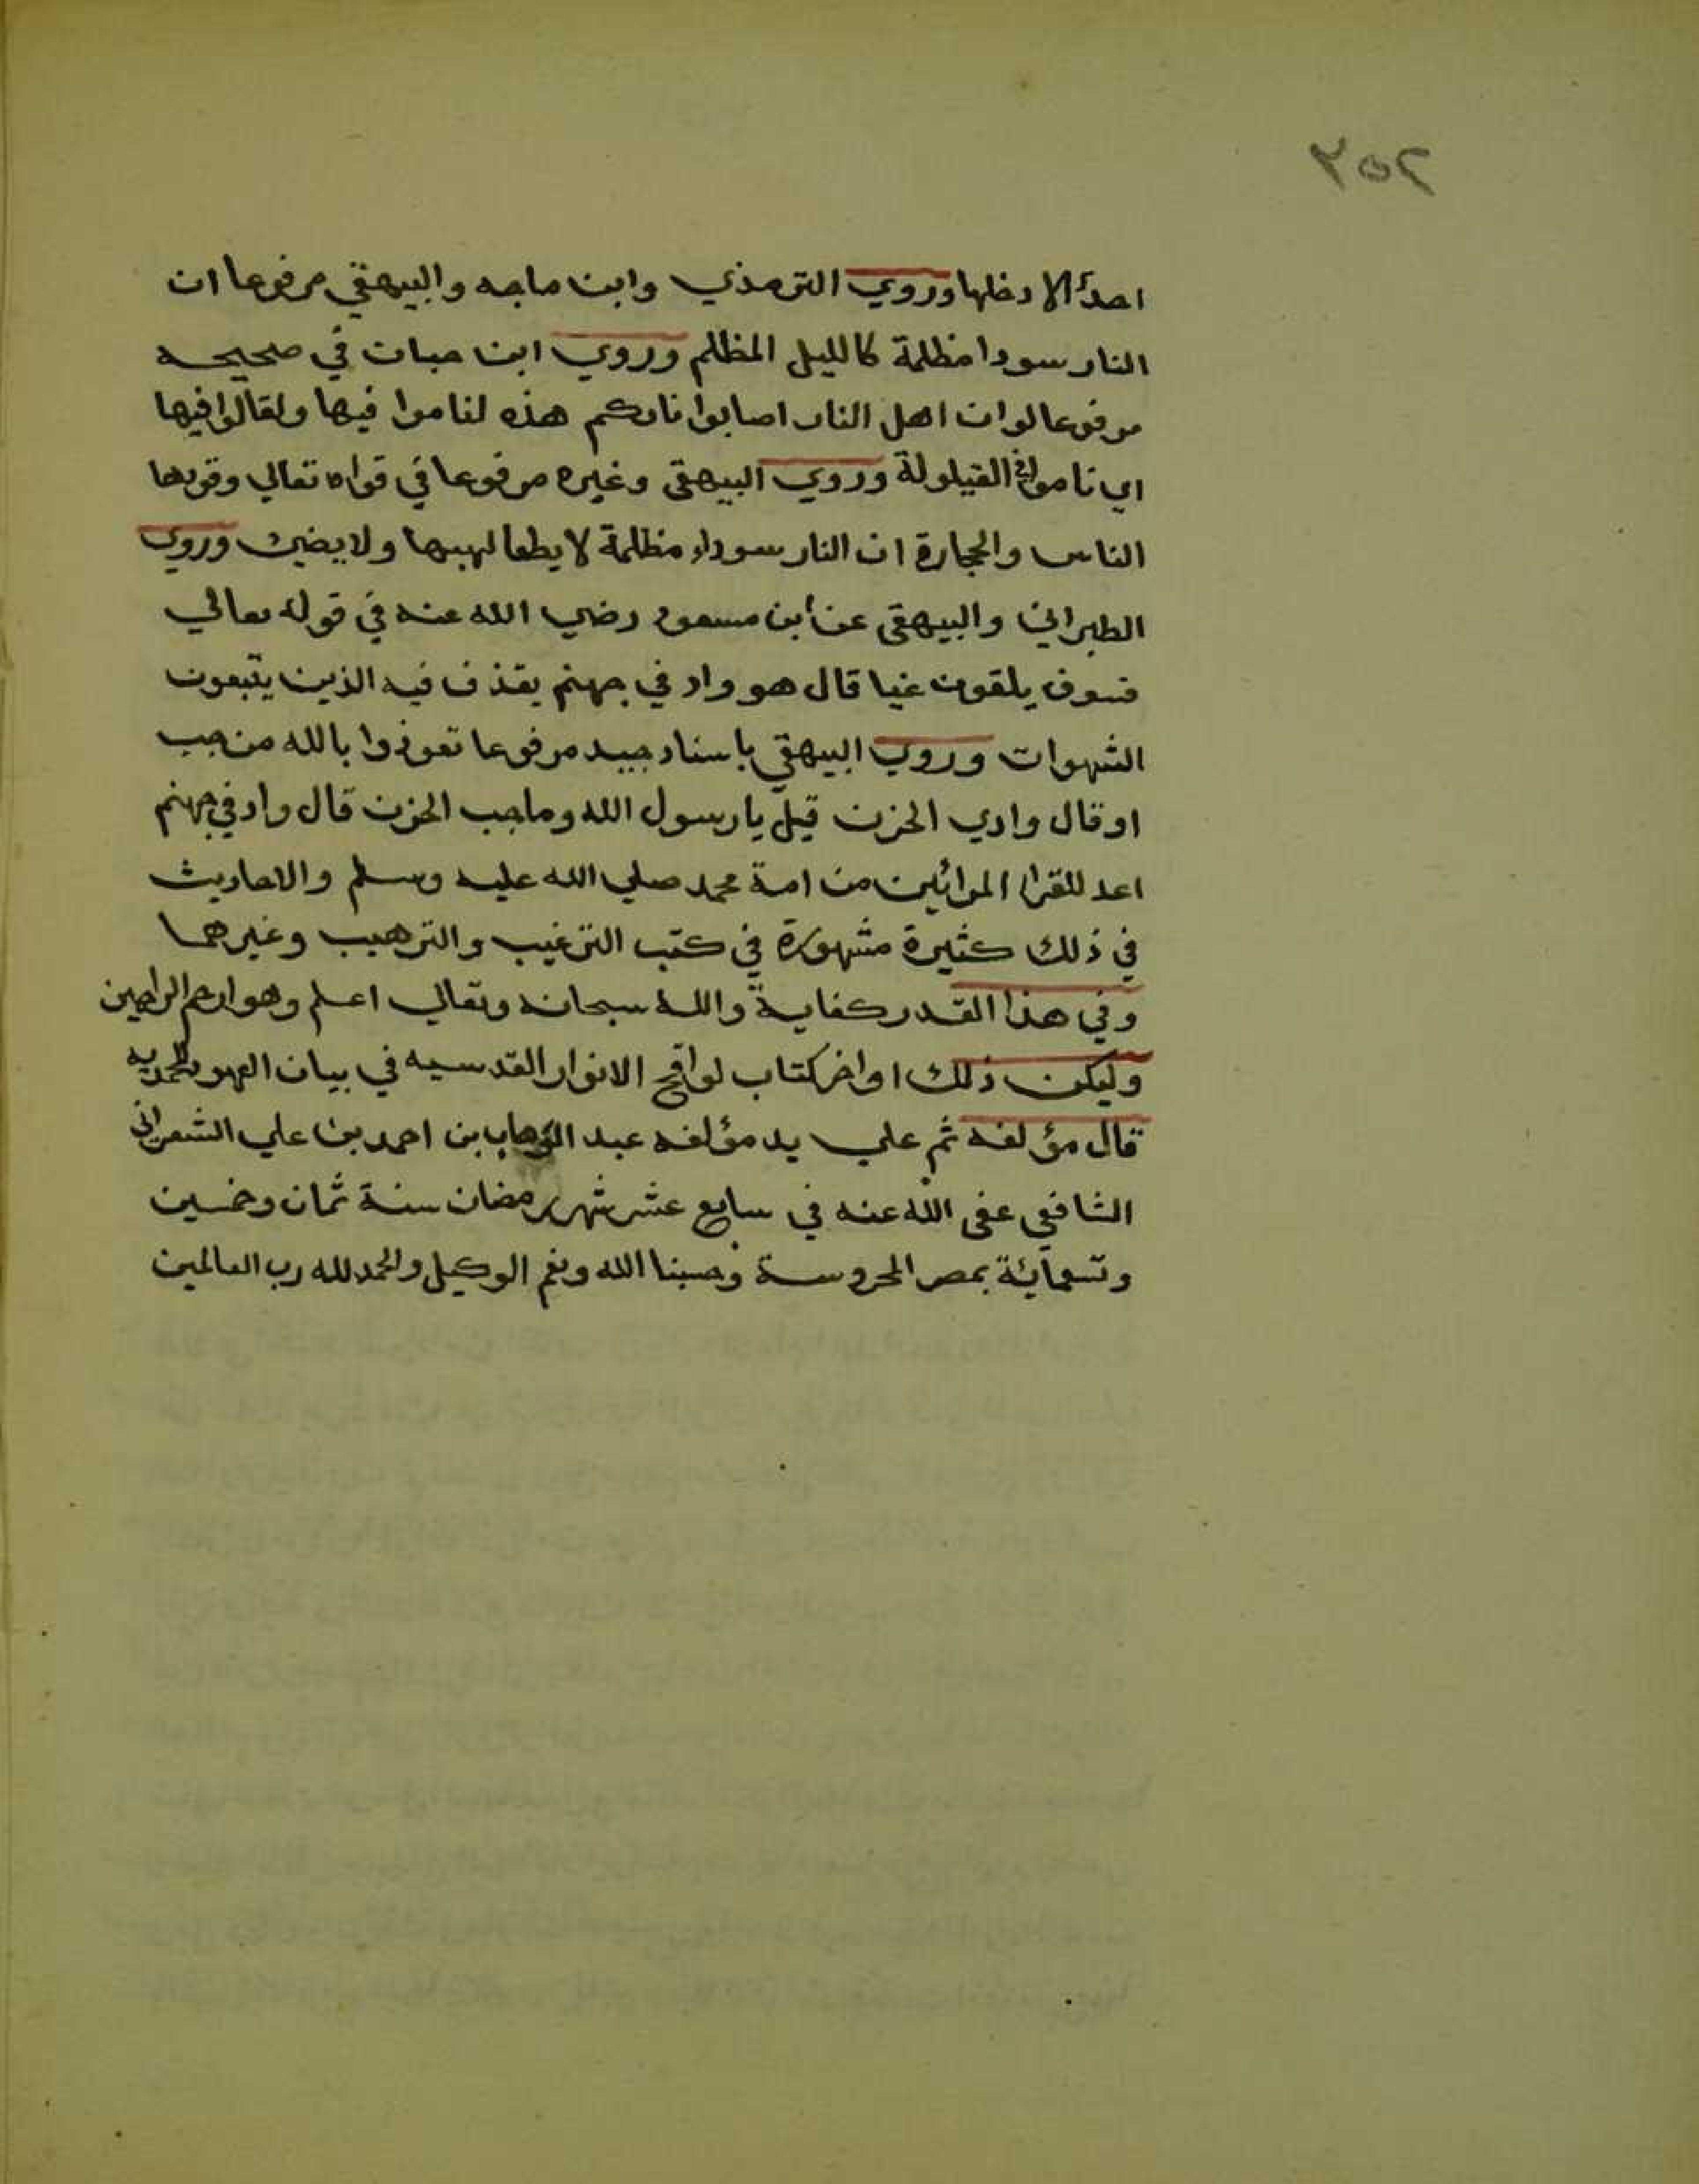 ٣٥٢
احد الا دخلها وروي الترمذي وابن ماجه والبيهقي مرفوعا ان
النار سودا مظلمة كالليل المظلم وروي ابن حبان في صحيحه
مرفوعا لو ان اهل النار اصابوا ناركم هذه لناموا فيها ولقالوا فيها
اي ناموا في القيلولة وروي البيهقي وغيره مرفوعا في قوله تعالي وقودها
الناس والحجارة ان النار سوداء مظلمة لا يطفا لهبها ولا يضئ وروي
الطبراني والبيهقي عن ابن مسعود رضي الله عنه في قوله تعالي
فسوف يلقون غيا قال هو واد في جهنم يقذف فيه الذين يتبعون
الشهوات وروي البيهقي باسناد جيد مرفوعا تعوذوا بالله من جب
او قال وادي الحزن قيل يا رسول الله وما جب الحزن قال واد في جهنم
اعد للقرا المرائين من امة محمد صلي الله عليه وسلم والاحاديث
في ذلك كثيرة مشهورة في كتب الترغيب والترهيب وغيرهما
وفي هذا القدر كفاية والله سبحانه وتعالي اعلم وهو ارحم الراحمين
وليكن ذلك اواخر كتاب لواقح الانوار القدسيه في بيان العهود المحمديه
قال مؤلفه ثم علي يد مؤلفه عبد الوهاب بن احمد بن علي الشعراني
الشافعي عفى الله عنه في سابع عشر شهر رمضان سنة ثمان وخمسين
وتسعمائة بمصر المحروسة وحسبنا الله ونعم الوكيل والحمد لله رب العالمين